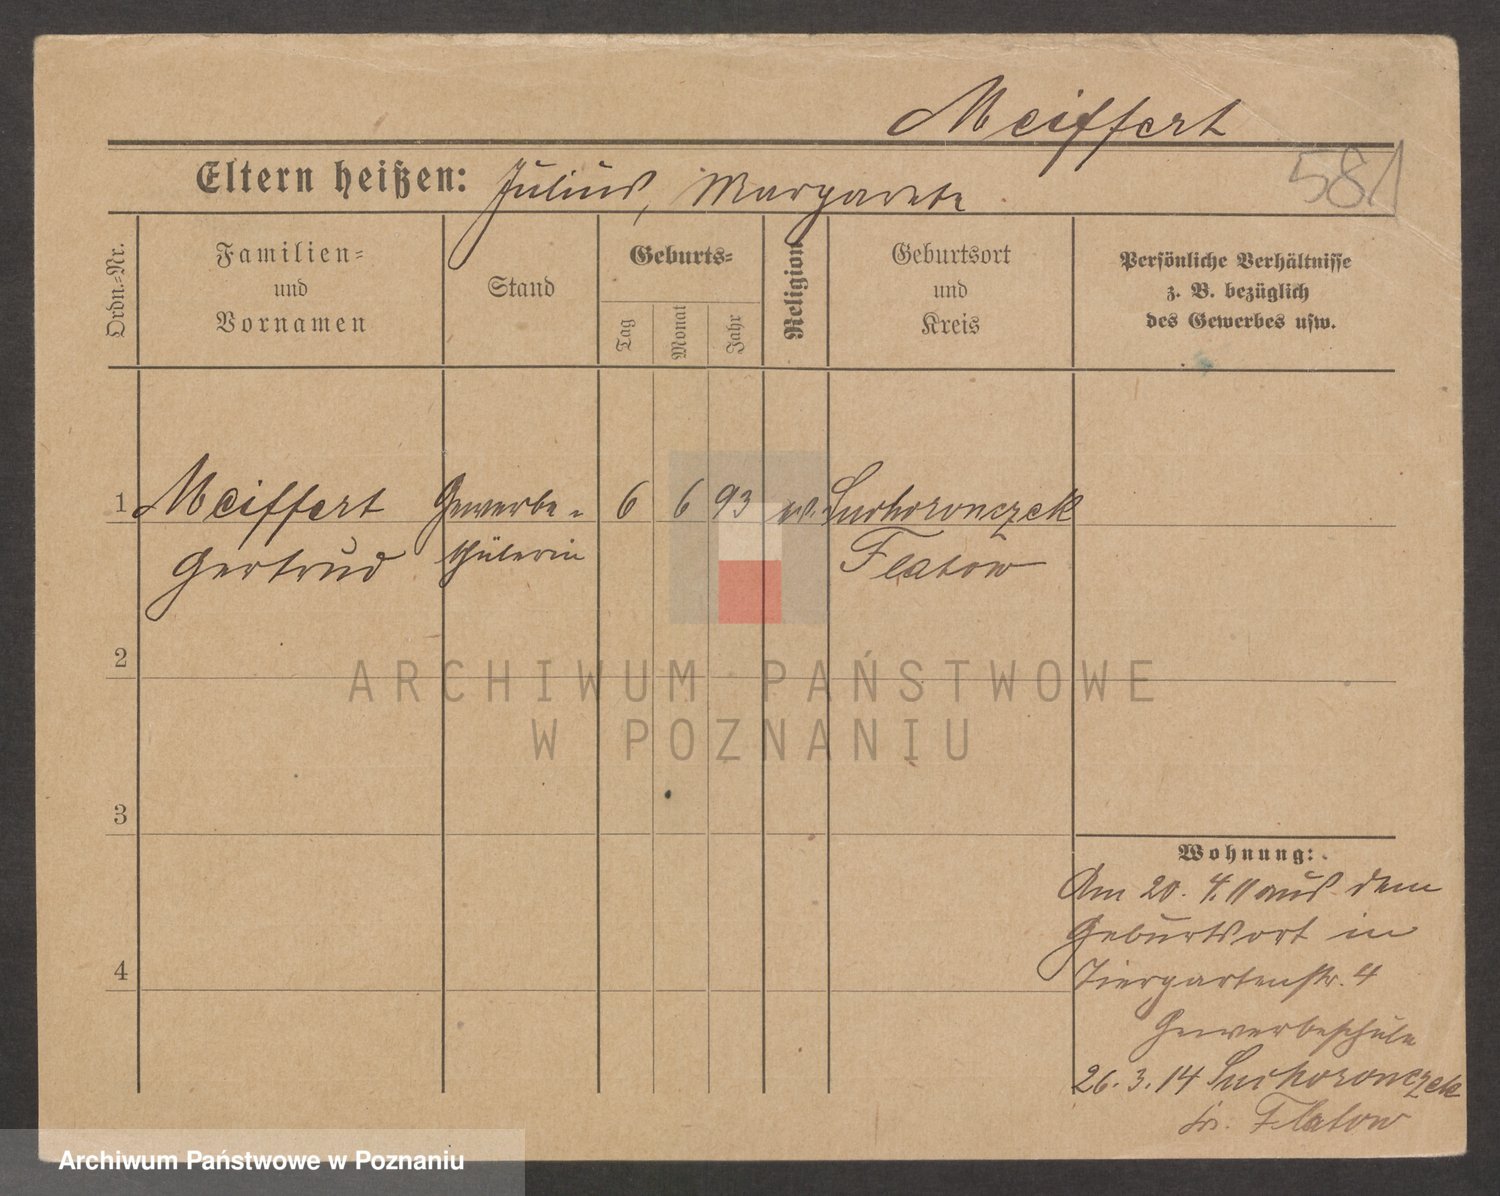 Meiffert
Eltern heißen: Julius, Margarete
581
Ordn.-Nr.
Familien-
und
Vornamen
Stand
Geburts-
Tag
Monat
Jahr
Religion
Geburtsort
und
Kreis
Persönliche Verhältnisse
z. B. bezüglich
des Gewerbes usw.
1 Meiffert Gewerbe- 6 6 93 ev. Suchoronczek
Gertrud schülerin Flatow
2
3
4
Wohnung:
Am 20. 4. 11 aus dem
Geburtsort in
Tiergartenstr. 4
Gewerbeschule
26. 3. 14 Suchoronczek
Kr. Flatow
ARCHIWUM PAŃSTWOWE
W POZNANIU
Archiwum Państwowe w Poznaniu